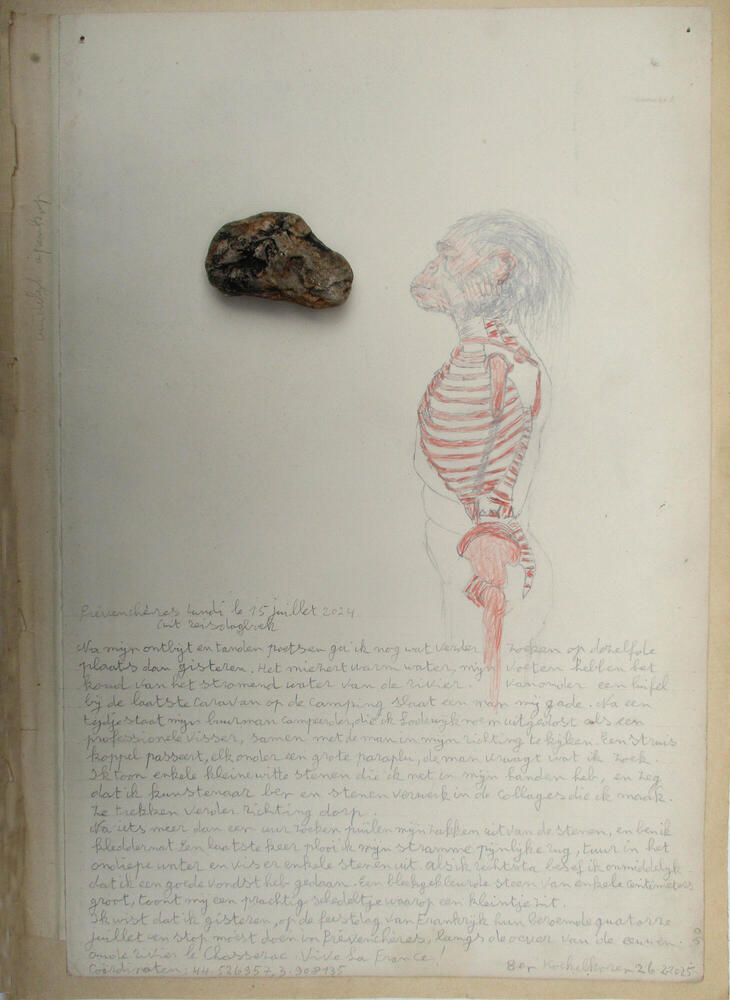 Prévenchères lundi le 15 juillet 2024
(uit reisdagboek
Na mijn ontbijt en tanden poetsen ga ik nog wat verder zoeken op dezelfde
plaats dan gisteren. Het miezert warm water, mijn voeten hebben het
koud van het stromend water van de rivier. Vanonder een luifel
bij de laatste caravan op de camping slaat een man mij gade. Na een
tijdje staat mijn buurman campeerder, die ik Lodewijk noem uitgedost als een
professionele visser, samen met de man in mijn richting te kijken. Een struis
koppel passeert, elk onder een grote paraplu, de man vraagt wat ik zoek.
Ik toon enkele kleine witte stenen die ik net in mijn handen heb, en zeg
dat ik kunstenaar ben en stenen verwerk in de collages die ik maak.
Ze trekken verder richting dorp.
Na iets meer dan een uur zoeken puilen mijn zakken uit van de stenen, en ben ik
kleddernat. Een laatste keer plooi ik mijn stramme pijnlijke rug, tuur in het
ondiepe water en vis er enkele stenen uit. Als ik rechtsta besef ik onmiddelijk
dat ik een goede vondst heb gedaan. Een bleekgekleurde steen van enkele centimeters
groot, toont mij een prachtig schedeltje waarop een kleintje zit.
Ik wist dat ik gisteren, op de feestdag van Frankrijk hun beroemde quatorze
juillet een stop moest doen in Prévenchères, langs de oever van de eeuwen-
oude rivier le Chassezac. Vive La France!
Coördinaten: 44.526957, 3.908135
Ben Kockelkoren 26.2.2025